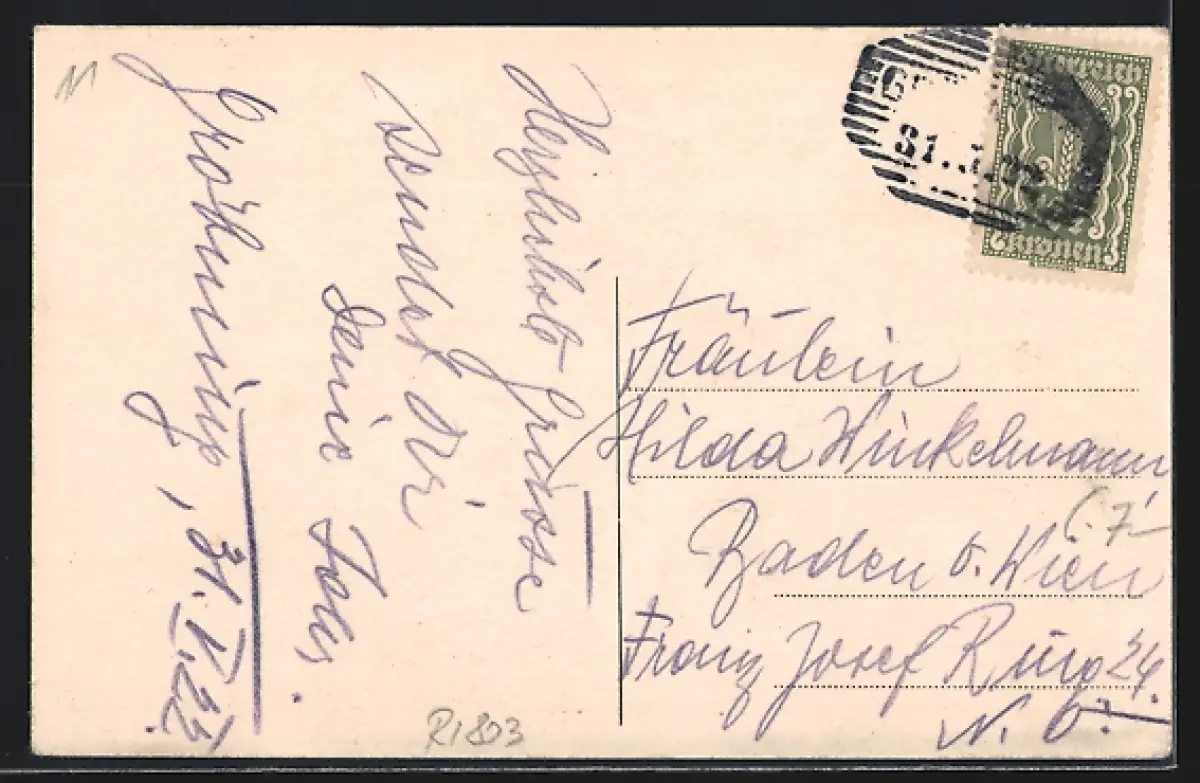 Herzlichste Grüsse
sendet Dir
Deine
31.V.22.
Fräulein
Hilda Winkelmann
Baden b. Wien
Franz Josef Ring 24.
N. Ö.
Österreich
Kronen
31.
R1803